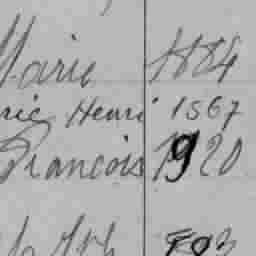 Marie 1884
rie Henri 1867
François 1920